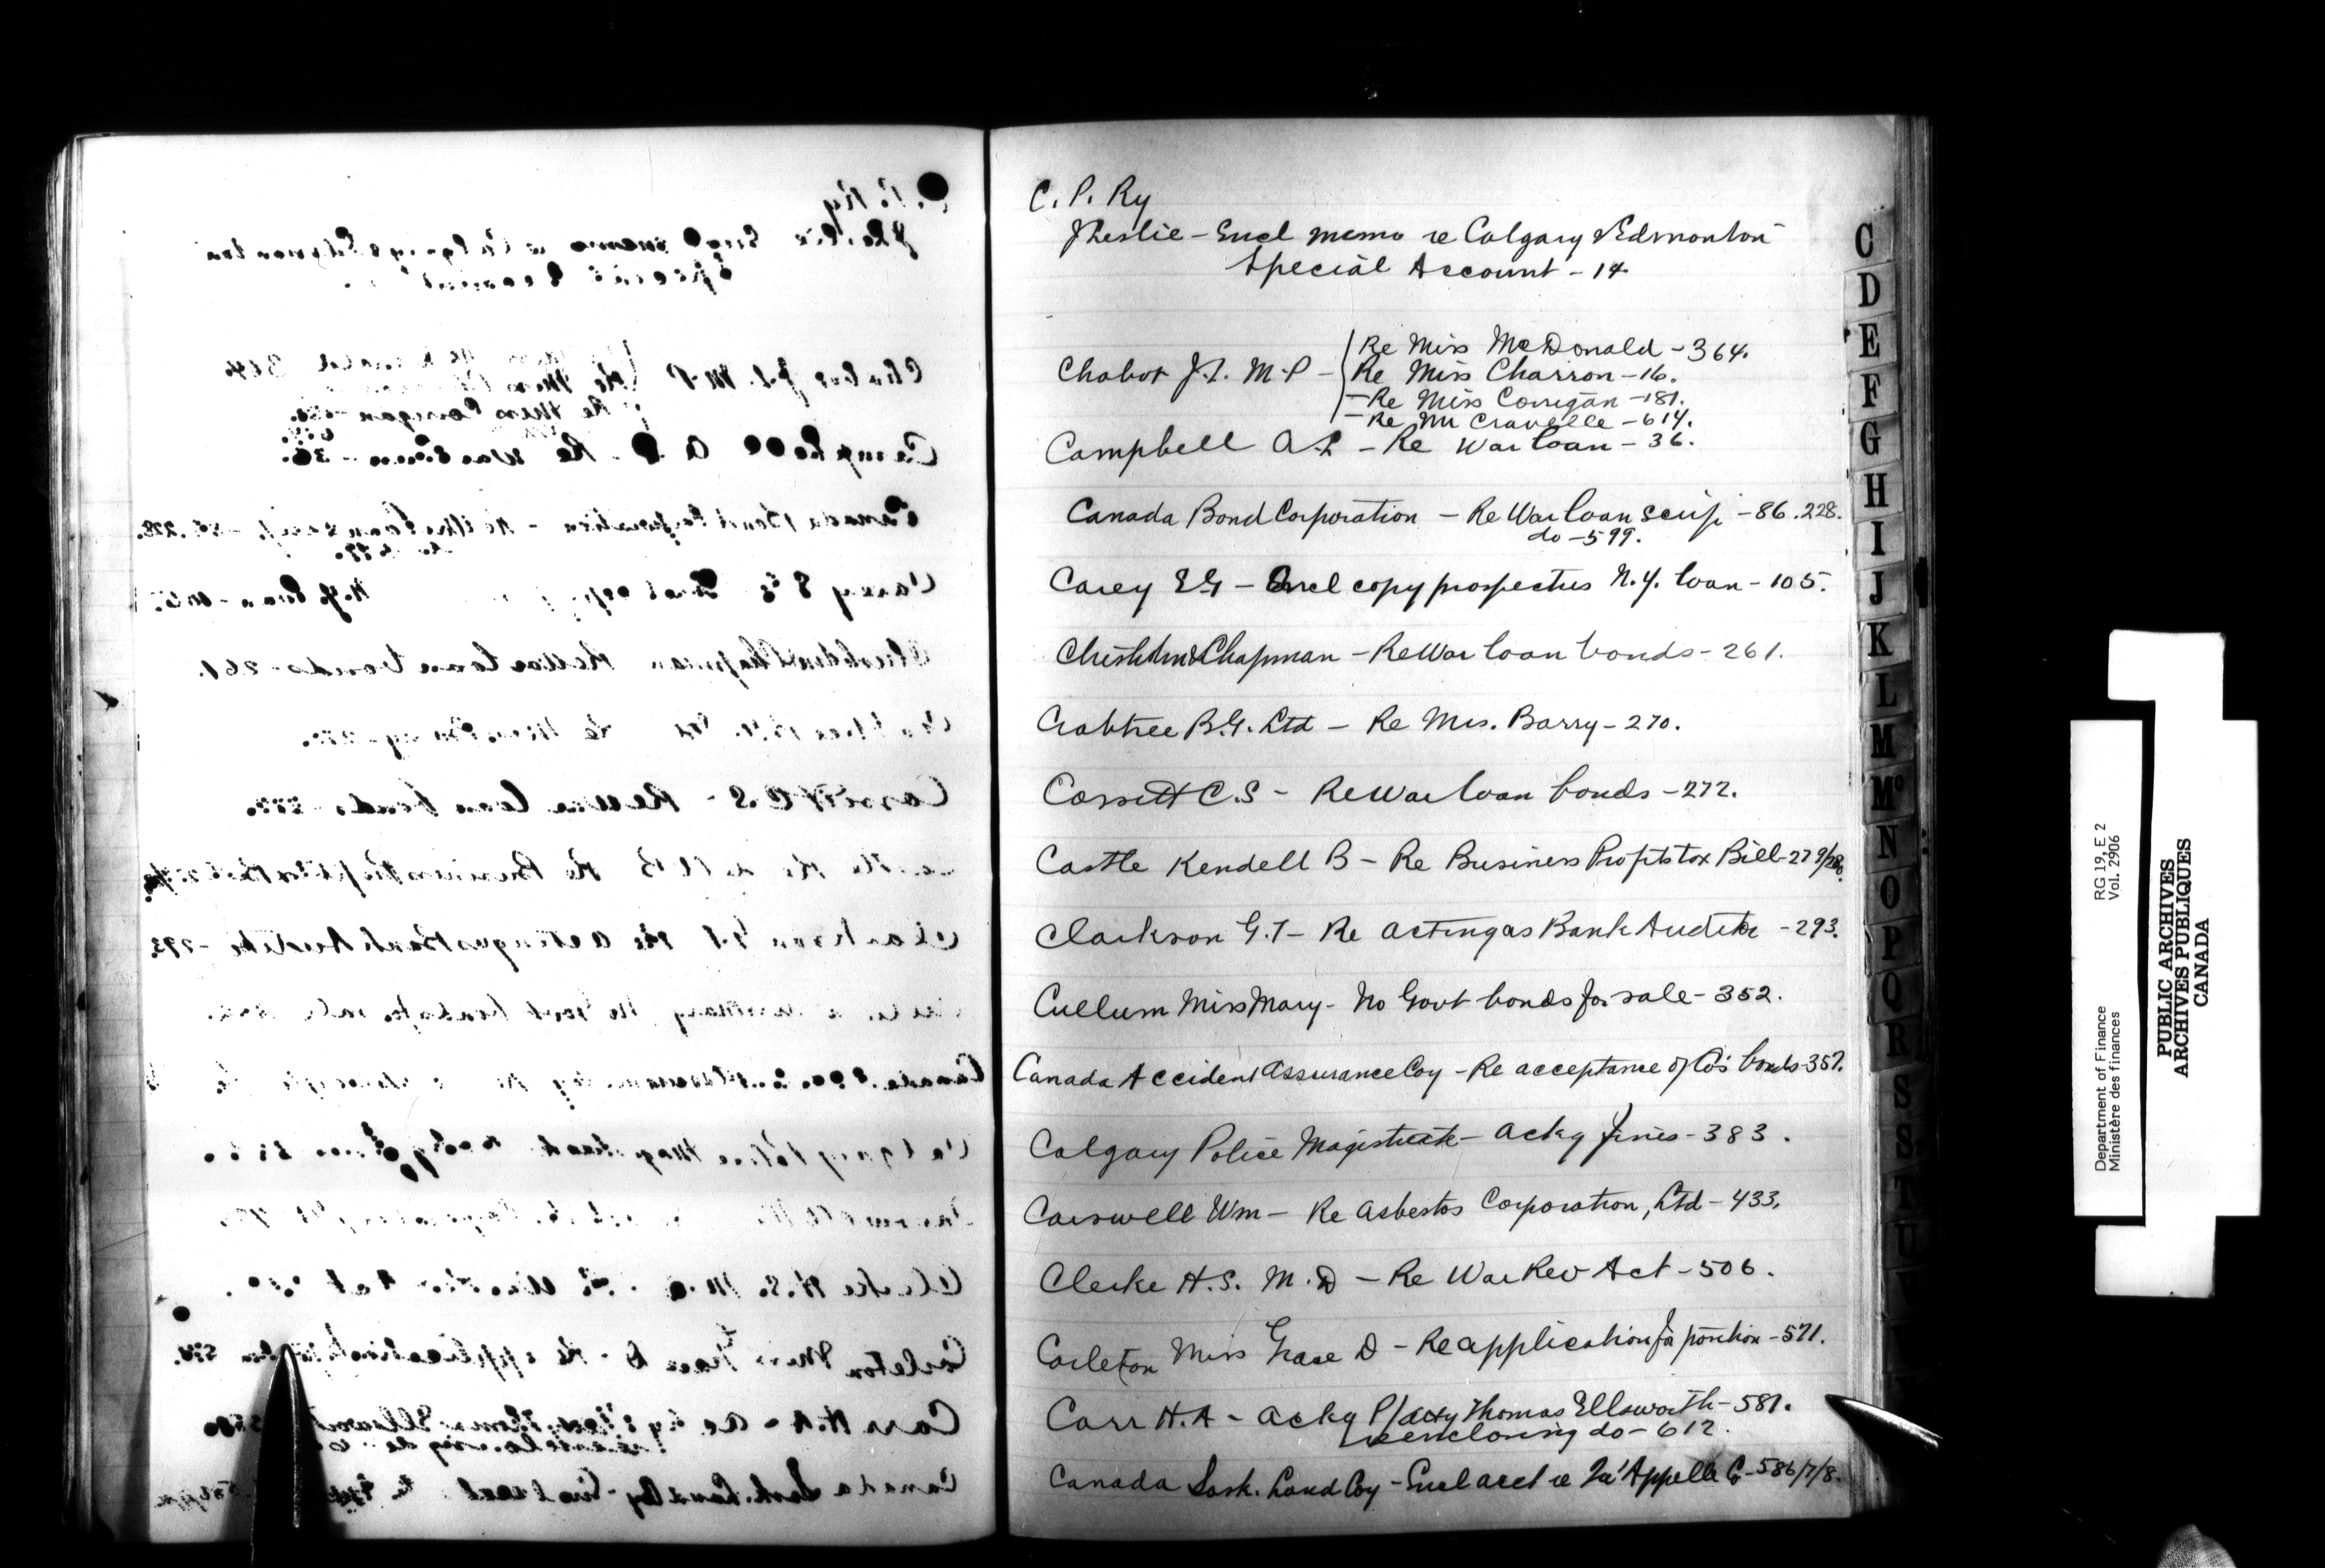 C. P. Ry
JLeslie - Encl memo re Calgary & Edmonton
Special Account - 14
Chabot J.L. M.P - Re Miss McDonald - 364.
Re Miss Charron - 16.
- Re Miss Corrigan - 181.
- Re Mr Cravelle - 614.
Campbell A.L - Re War loan - 36.
Canada Bond Corporation - Re War loan scrip - 86.228.
do - 599.
Carey E G - Encl copy prospectus N.Y. loan - 105.
Chisholm & Chapman - Re War loan bonds - 261.
Crabtree B.G. Ltd - Re Mrs. Barry - 270.
Cossitt C.S - Re War loan bonds - 272.
Castle Kendell B - Re Business Profits tax Bill - 279/280.
Clarkson G.T - Re acting as Bank Auditor - 293.
Cullum Miss Mary - No Govt bonds for sale - 352.
Canada Accident Assurance Coy - Re acceptance of Co's bonds - 357.
Calgary Police Magistrate - ackg fines - 383.
Carswell Wm - Re Asbestos Corporation, Ltd - 433.
Clerke H.S. M.D - Re War Rev Act - 506.
Carleton Miss Grace D - Re application for position - 571.
Carr H.A - ackg P/atty Thomas Ellsworth - 581.
re enclosing do - 612.
Canada Sask. Land Coy - Encl acct re Qu'Appelle Co - 586/7/8.
C
D
E
F
G
H
I
J
K
L
M
Mc
N
O
P
Q
R
S
S
T
U
Department of Finance
Ministère des finances
RG 19, E 2
Vol. 2906
PUBLIC ARCHIVES
ARCHIVES PUBLIQUES
CANADA